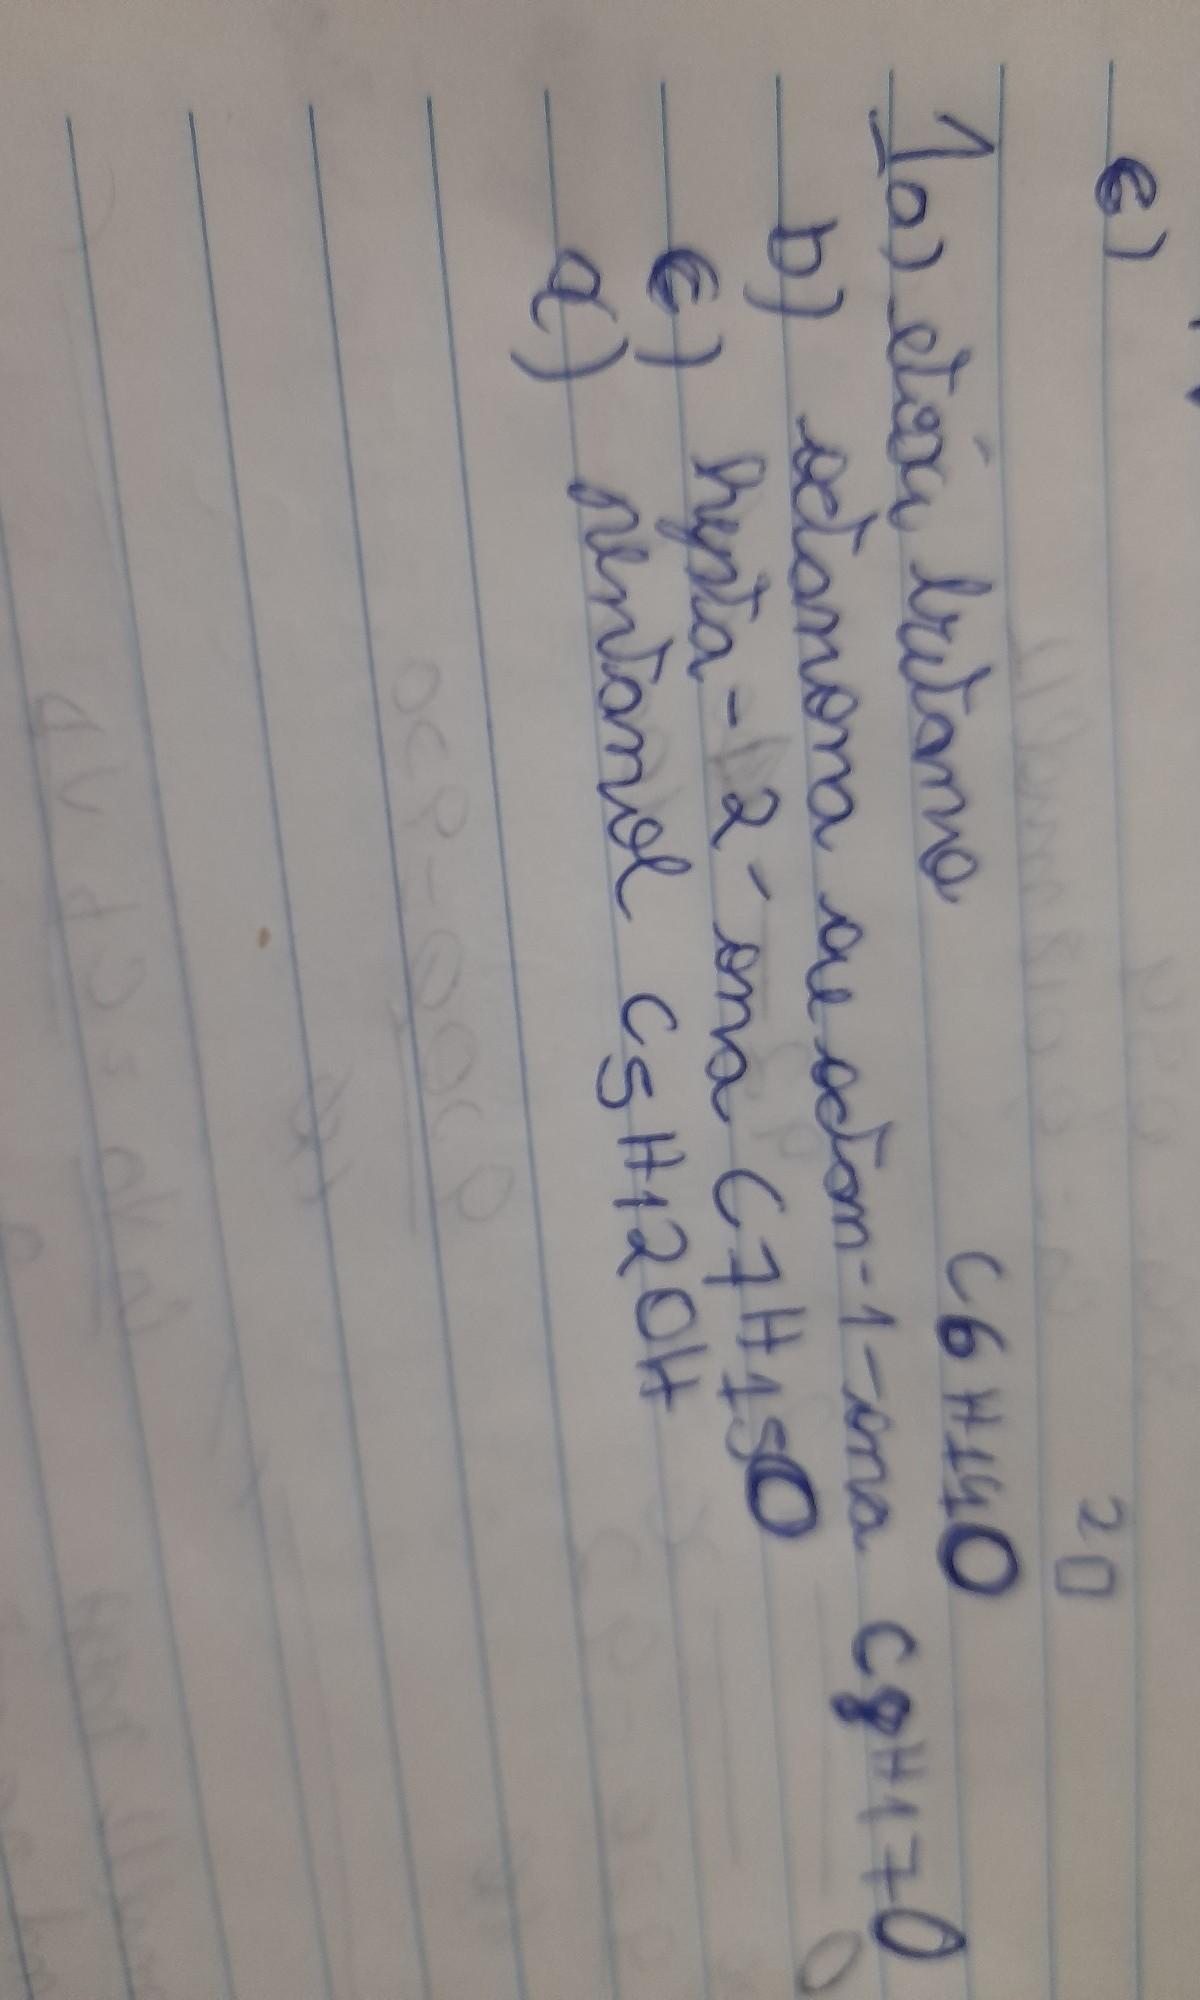 c)
20
1 a) etóxi butano C6H14O
b) octanona ou octan-1-ona C8H17O
c) hepta-2-ona C7H15O
d) pentanol C5H12OH